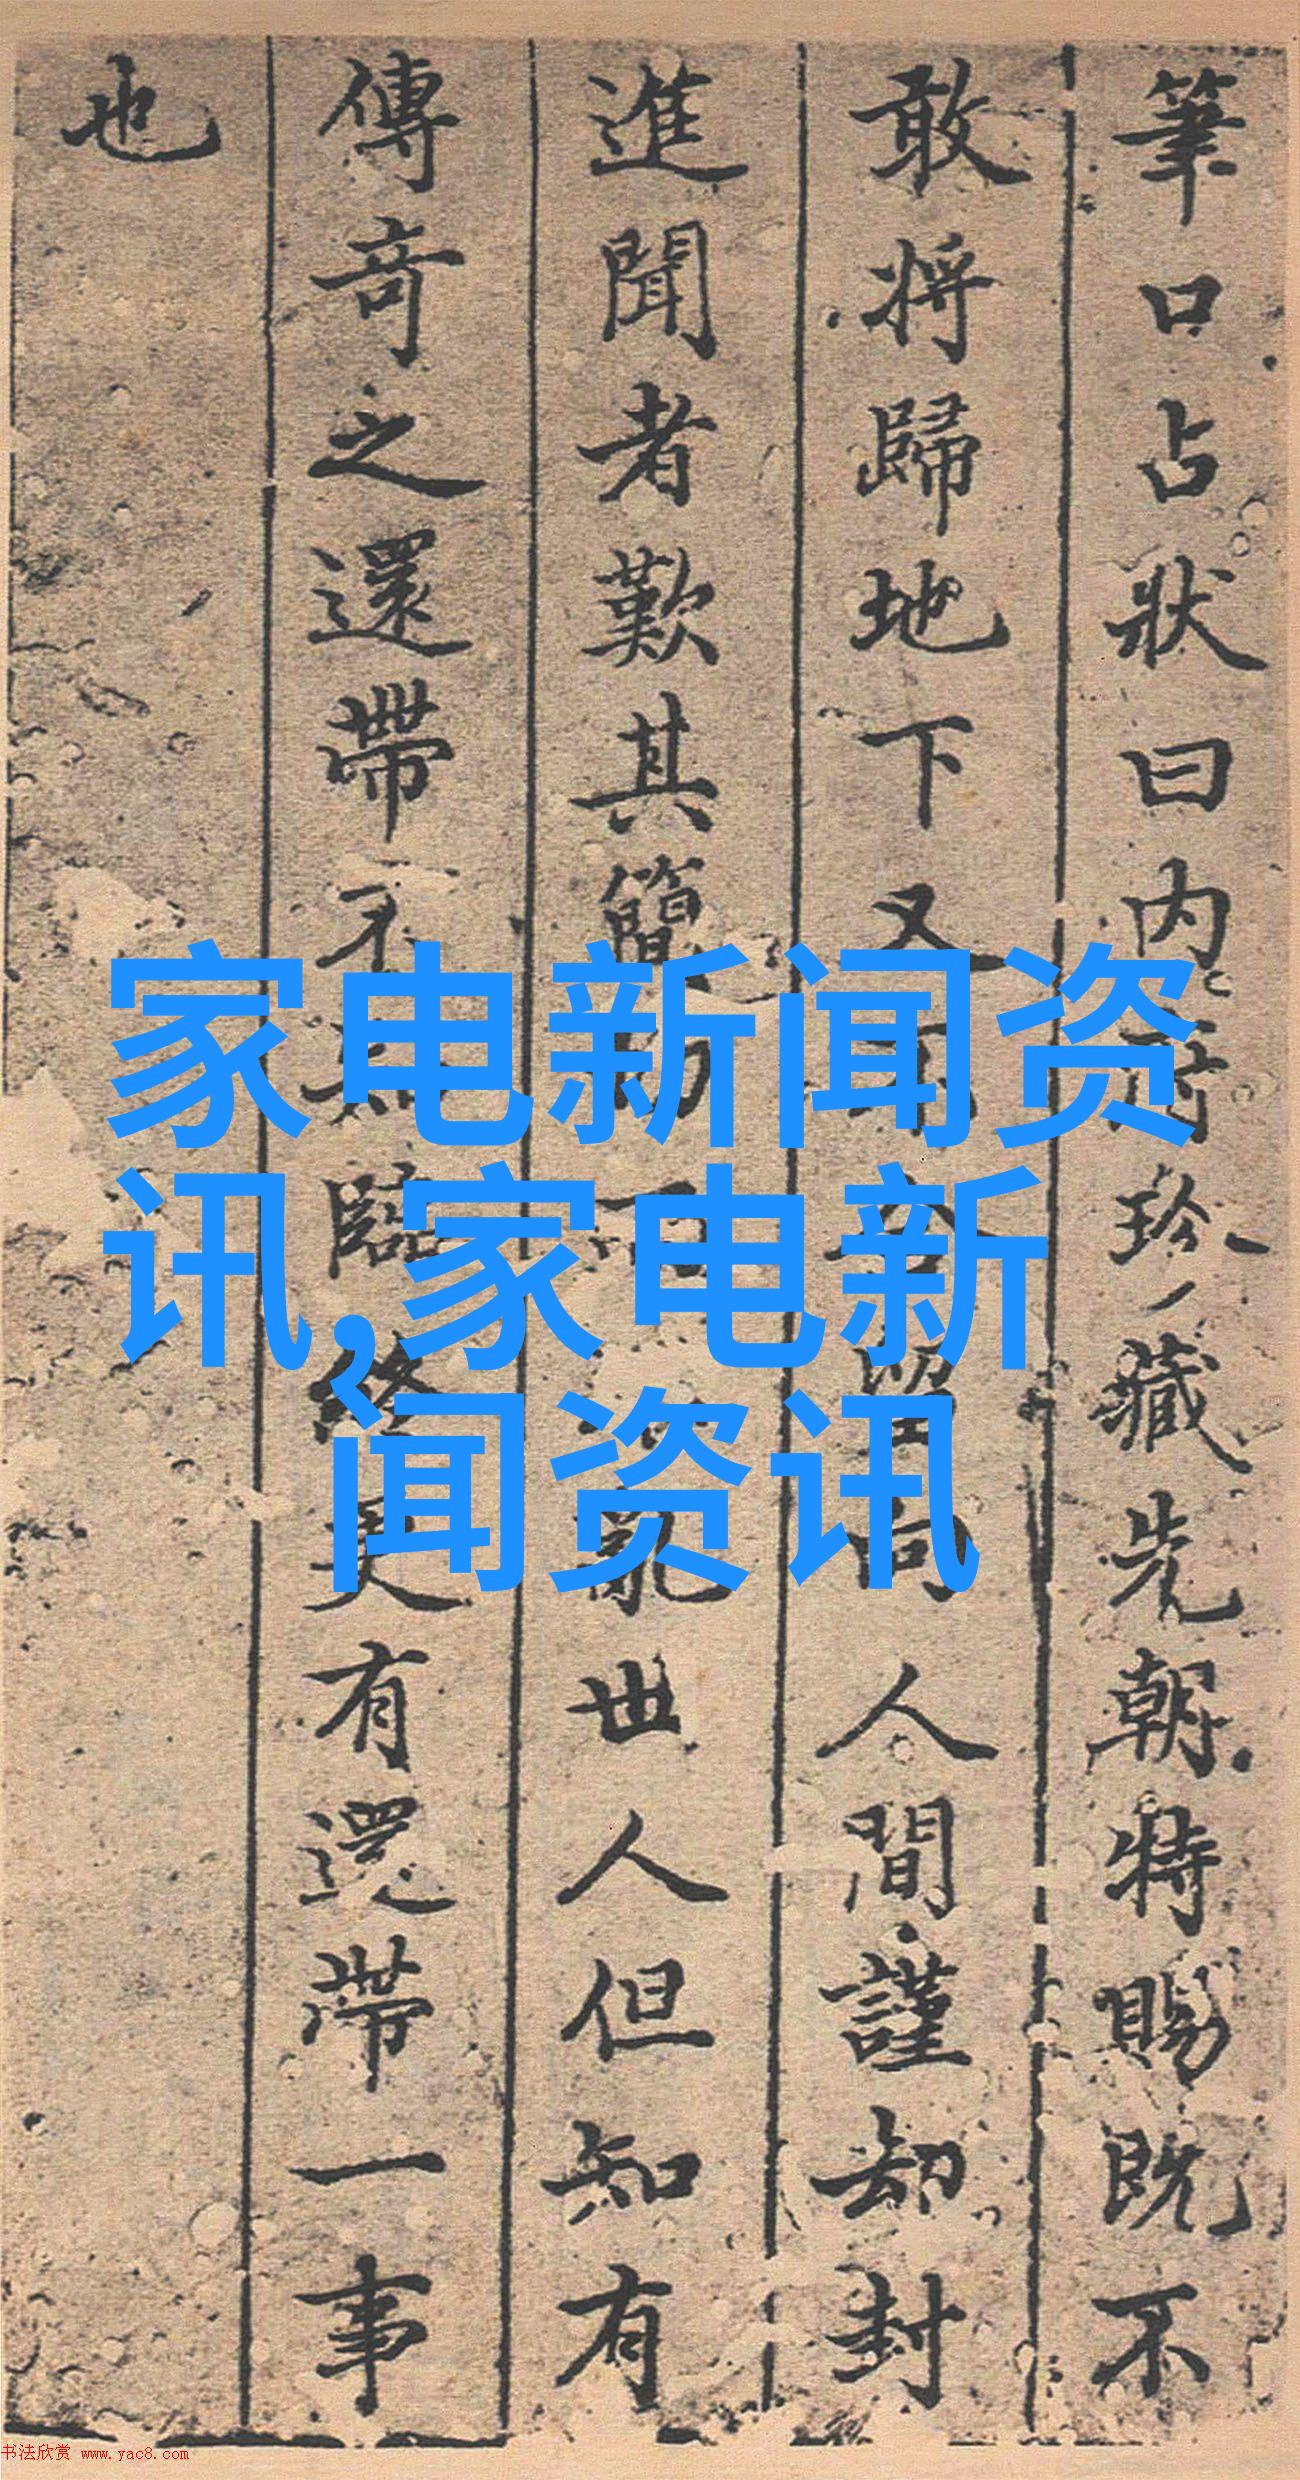 筆口占狀曰内府珍藏先朝特賜既不
敢將歸地下又不合留向人間謹却封
進聞者歎其簡約而不亂世人但知有
傳奇之還帶不知臨終更有還帶一事
也
家电新闻资
讯,家电新
闻资讯
书法欣赏 www.yac8.com